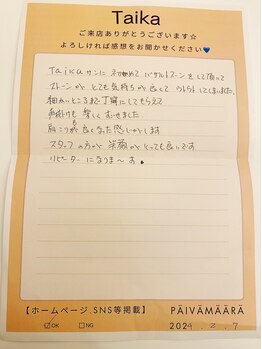 Taika
ご来店ありがとうございます☆
よろしければ感想をお聞かせください💙
Taikaサンに初めてバザルトストーンをして頂って
ストーンがとても気持ちが良くてうとうとしてしまいました。
細かいところまで丁寧にしてもらえて
お話しも楽しくできました
肩こりも良くなった感じがします
スタッフの方が笑顔がとっても良いです
リピーターになりま〜す。
【ホームページ、SNS等掲載】
☑OK □NG
PÄIVÄMÄÄRÄ
2024. 2. 7